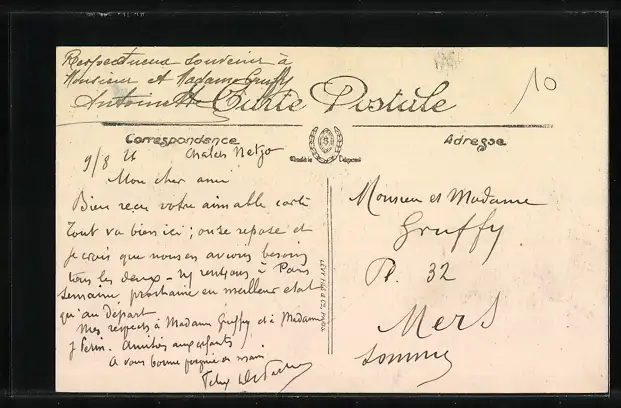 Respectueux souvenir à
Monsieur et Madame Gruffy
Antoinette
Carte Postale
Correspondance
Adresse
10
9/8 26 Chalet
Mon cher ami
Bien reçu votre aimable carte
Tout va bien ici ; on se repose et
je crois que nous en avions besoin
tous les deux - à Paris
semaine prochaine en meilleur état
qu'au départ
Mes respects à Madame Gruffy et à Madame
J Perin. Amitiés aux enfants
A vous bonne poignée de main
Félix
Monsieur et Madame
Gruffy
Pl. 32
Mers
Somme